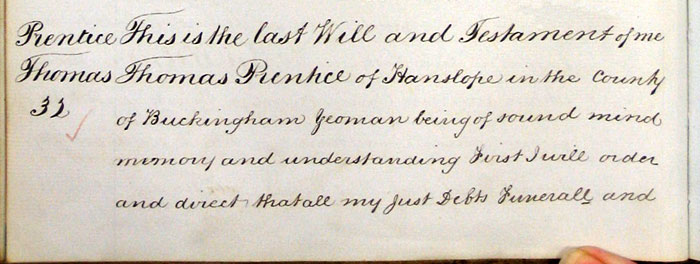 Prentice This is the last Will and Testament of me
Thomas Thomas Prentice of Hanslope in the County
32 of Buckingham Yeoman being of sound mind
memory and understanding First I will order
and direct that all my Just Debts Funerall and